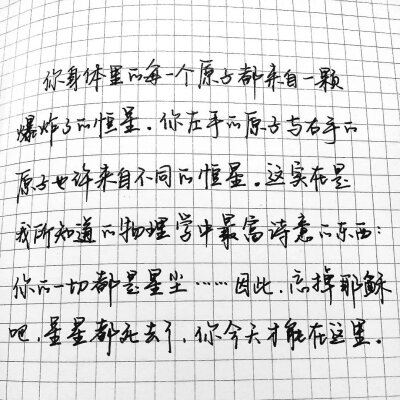 你身体里的每一个原子都来自一颗
爆炸了的恒星。你左手的原子与右手的
原子也许来自不同的恒星。这实在是
我所知道的物理学中最富诗意的东西:
你的一切都是星尘……因此,忘掉耶稣
吧,星星都死去了,你今天才能在这里。